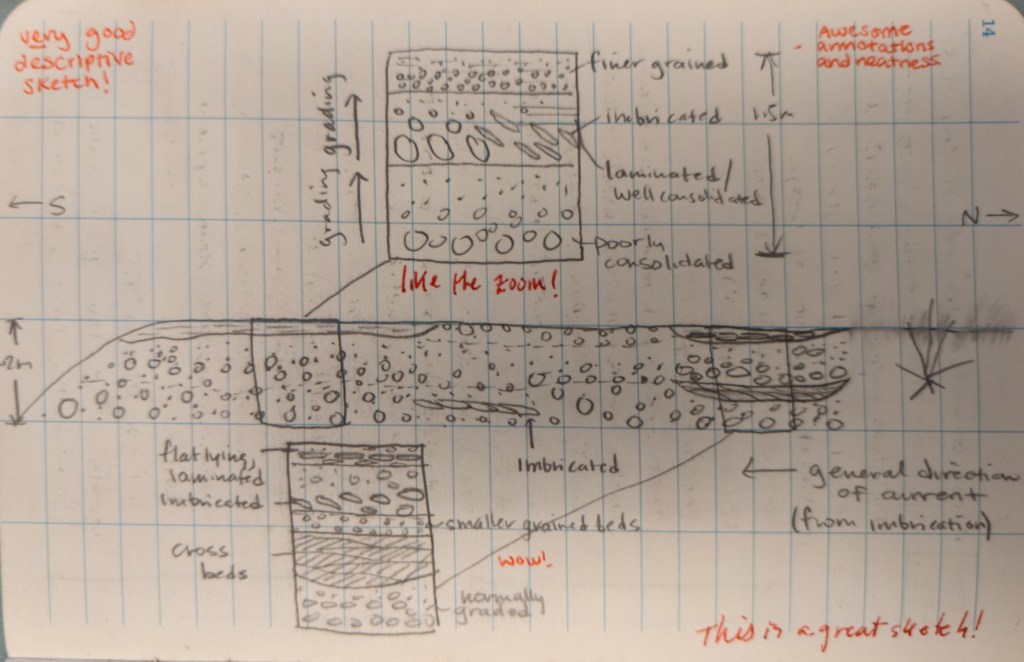 very good
descriptive
sketch!
Awesome
annotations
and neatness
14
grading grading
finer grained
imbricated
1.5m
laminated/
well consolidated
poorly
consolidated
← S
N →
like the zoom!
2m
flat lying,
laminated
Imbricated
cross
beds
smaller grained beds
wow!
normally
graded
Imbricated
← general direction
of current
(from imbrication)
This is a great sketch!